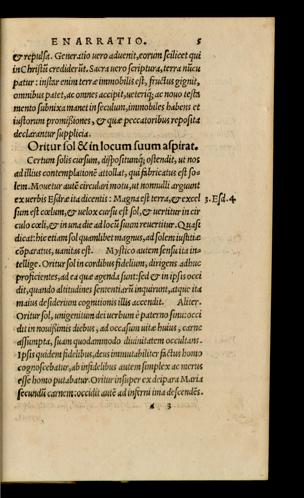 ENARRATIO. 5
& repulsa. Generatio uero aduenit, eorum scilicet qui
in Christū crediderūt. Sacra uero scriptura, terra nūcu
patur: instar enim terræ immobilis est, fructus gignit,
omnibus patet, ac omnes accipit, ueteriq; ac nouo testa
mento subnixa manet in seculum, immobiles habens et
iustorum promissiones, & quæ peccatoribus reposita
declarantur supplicia.
Oritur sol & in locum suum aspirat.
Certum solis cursum, dispositumq; ostendit, ut nos
ad illius contemplationē attollat, qui fabricatus est so=
lem. Mouetur autē circulari motu, ut nonnulli arguunt
ex uerbis Esdræ ita dicentis: Magna est terra, & excel
3. Esd. 4.
sum est cœlum, & uelox cursu est sol, & uertitur in cir
culo cœli, & in una die ad locū suum reuertitur. Quasi
dicat: hic etiam sol quamlibet magnus, ad solem iustitiæ
cōparatus, uanitas est. Mystico autem sensu ita in=
tellige. Oritur sol in cordibus fidelium, dirigens adhuc
proficientes, ad ea quæ agenda sunt: sed & in ipsis occi
dit, quando altitudines sententiarū inquirunt, atque ita
maius desiderium cognitionis illis accendit. Aliter.
Oritur sol, unigenitum dei uerbum è paterno sinu: occi
dit in nouissimis diebus, ad occasum uitæ huius, carne
assumpta, suam quodammodo diuinitatem occultans.
Ipsis quidem fidelibus, deus immutabiliter factus homo
cognoscebatur, ab infidelibus autem simplex ac merus
esse homo putabatur. Oritur insuper ex deipara Maria
secundū carnem: occidit autē ad inferni ima descendēs.
A 3